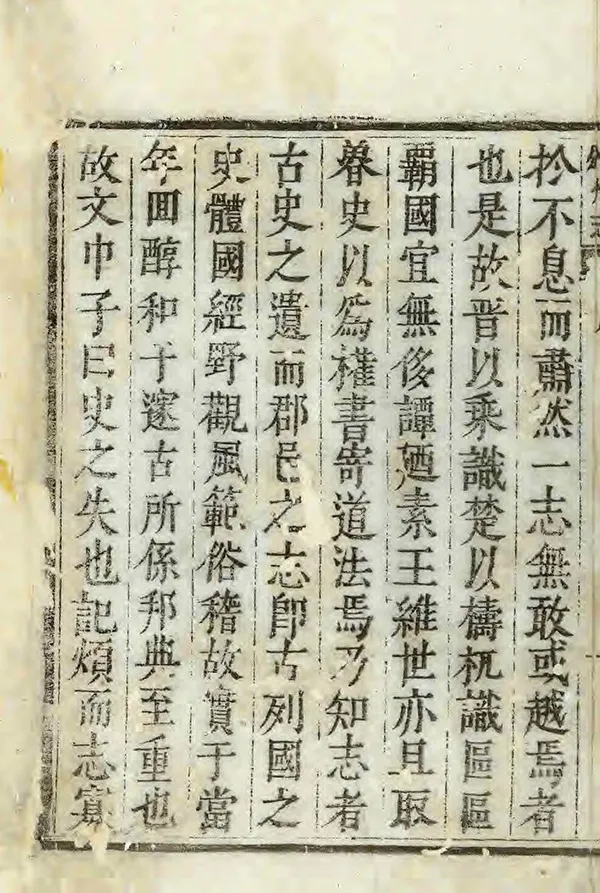 扵不息而肅然一志無敢或越焉者
也是故晋以乘識楚以檮杌識區區
覇國宜無後譚廼素王維世亦且取
史以爲權書寄道法焉乃知志者
古史之遺而郡邑之志即古列國之
史體國經野觀風範俗稽故實于當
年囬醇和于邃古所係邦典至重也
故文中子曰史之失也記煩而志寡